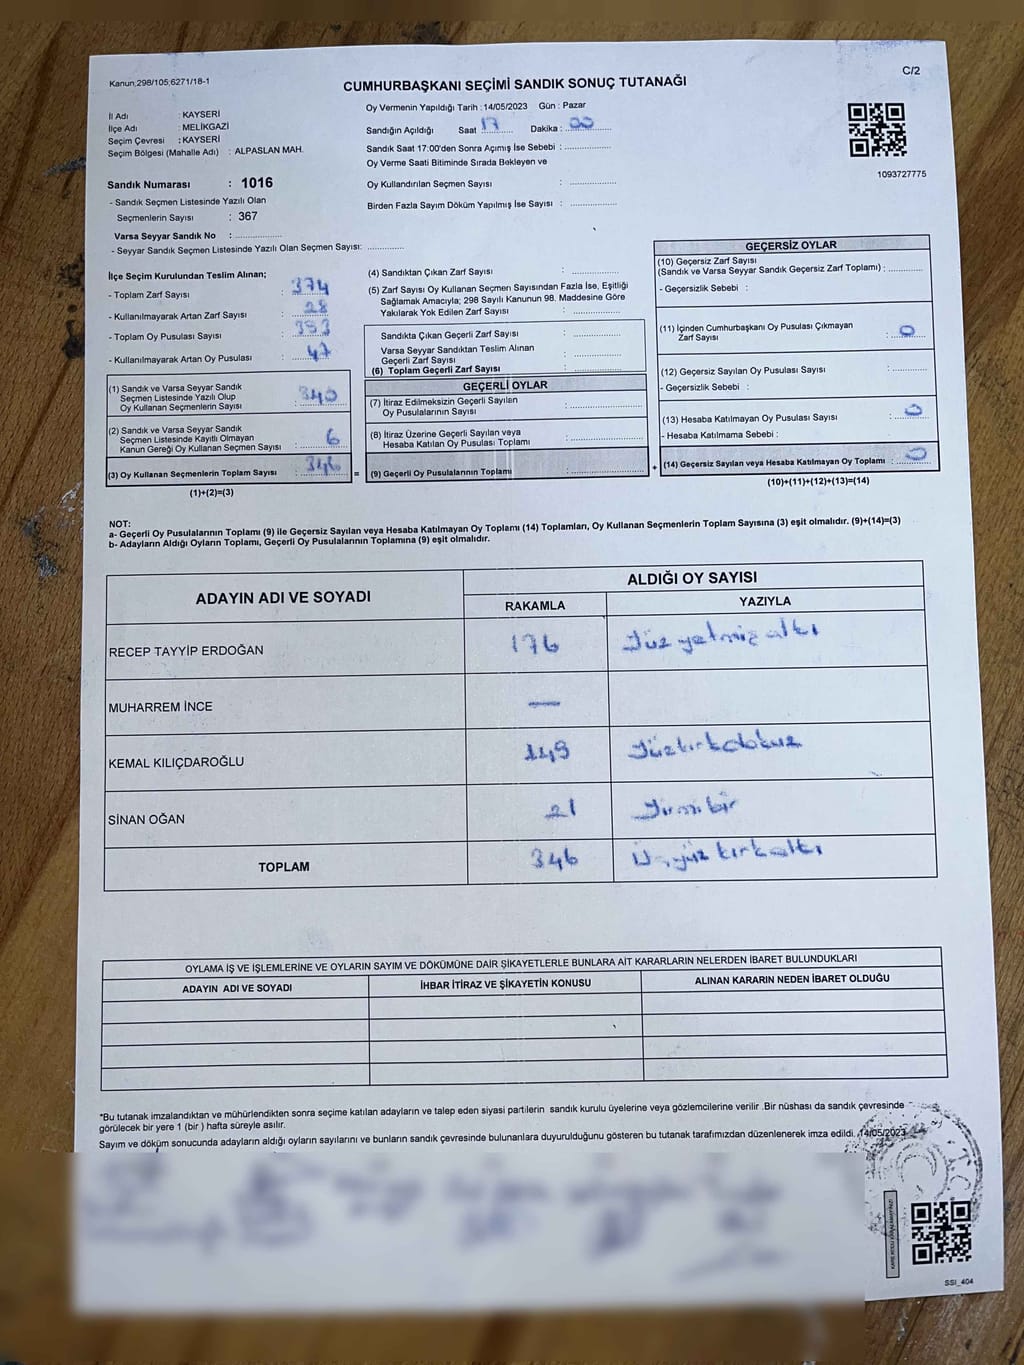 Kanun;298/105;6271/18-1
CUMHURBAŞKANI SEÇİMİ SANDIK SONUÇ TUTANAĞI
C/2
İl Adı : KAYSERİ
İlçe Adı : MELİKGAZİ
Seçim Çevresi : KAYSERİ
Seçim Bölgesi (Mahalle Adı) : ALPASLAN MAH.
Sandık Numarası : 1016
- Sandık Seçmen Listesinde Yazılı Olan
Seçmenlerin Sayısı : 367
Varsa Seyyar Sandık No :
- Seyyar Sandık Seçmen Listesinde Yazılı Olan Seçmen Sayısı:
Oy Vermenin Yapıldığı Tarih : 14/05/2023 Gün : Pazar
Sandığın Açıldığı Saat 17 Dakika : 00
Sandık Saat 17:00'den Sonra Açımış İse Sebebi :
Oy Verme Saati Bitiminde Sırada Bekleyen ve
Oy Kullandırılan Seçmen Sayısı :
Birden Fazla Sayım Döküm Yapılmış İse Sayısı :
1093727775
İlçe Seçim Kurulundan Teslim Alınan;
- Toplam Zarf Sayısı : 374
- Kullanılmayarak Artan Zarf Sayısı : 28
- Toplam Oy Pusulası Sayısı : 393
- Kullanılmayarak Artan Oy Pusulası : 47
(1) Sandık ve Varsa Seyyar Sandık
Seçmen Listesinde Yazılı Olup
Oy Kullanan Seçmenlerin Sayısı : 340
(2) Sandık ve Varsa Seyyar Sandık
Seçmen Listesinde Kayıtlı Olmayan
Kanun Gereği Oy Kullanan Seçmen Sayısı : 6
(3) Oy Kullanan Seçmenlerin Toplam Sayısı : 346
(1)+(2)=(3)
(4) Sandıktan Çıkan Zarf Sayısı :
(5) Zarf Sayısı Oy Kullanan Seçmen Sayısından Fazla İse, Eşitliği
Sağlamak Amacıyla; 298 Sayılı Kanunun 98. Maddesine Göre
Yakılarak Yok Edilen Zarf Sayısı :
Sandıkta Çıkan Geçerli Zarf Sayısı :
Varsa Seyyar Sandıktan Teslim Alınan
Geçerli Zarf Sayısı :
(6) Toplam Geçerli Zarf Sayısı :
GEÇERLİ OYLAR
(7) İtiraz Edilmeksizin Geçerli Sayılan
Oy Pusulalarının Sayısı :
(8) İtiraz Üzerine Geçerli Sayılan veya
Hesaba Katılan Oy Pusulası Toplamı :
= (9) Geçerli Oy Pusulalarının Toplamı :
GEÇERSİZ OYLAR
(10) Geçersiz Zarf Sayısı
(Sandık ve Varsa Seyyar Sandık Geçersiz Zarf Toplamı) :
- Geçersizlik Sebebi :
(11) İçinden Cumhurbaşkanı Oy Pusulası Çıkmayan
Zarf Sayısı : 0
(12) Geçersiz Sayılan Oy Pusulası Sayısı :
- Geçersizlik Sebebi :
(13) Hesaba Katılmayan Oy Pusulası Sayısı : 0
- Hesaba Katılmama Sebebi :
+ (14) Geçersiz Sayılan veya Hesaba Katılmayan Oy Toplamı : 0
(10)+(11)+(12)+(13)=(14)
NOT:
a- Geçerli Oy Pusulalarının Toplamı (9) ile Geçersiz Sayılan veya Hesaba Katılmayan Oy Toplamı (14) Toplamları, Oy Kullanan Seçmenlerin Toplam Sayısına (3) eşit olmalıdır. (9)+(14)=(3)
b- Adayların Aldığı Oyların Toplamı, Geçerli Oy Pusulalarının Toplamına (9) eşit olmalıdır.
ADAYIN ADI VE SOYADI
ALDIĞI OY SAYISI
RAKAMLA YAZIYLA
RECEP TAYYİP ERDOĞAN 176 Yüz yetmiş altı
MUHARREM İNCE —
KEMAL KILIÇDAROĞLU 149 Yüzkırkdokuz
SİNAN OĞAN 21 Yirmibir
TOPLAM 346 Üçyüz kırkaltı
OYLAMA İŞ VE İŞLEMLERİNE VE OYLARIN SAYIM VE DÖKÜMÜNE DAİR ŞİKAYETLERLE BUNLARA AİT KARARLARIN NELERDEN İBARET BULUNDUKLARI
ADAYIN ADI VE SOYADI İHBAR İTİRAZ VE ŞİKAYETİN KONUSU ALINAN KARARIN NEDEN İBARET OLDUĞU
*Bu tutanak imzalandıktan ve mühürlendikten sonra seçime katılan adayların ve talep eden siyasi partilerin sandık kurulu üyelerine veya gözlemcilerine verilir .Bir nüshası da sandık çevresinde
görülecek bir yere 1 (bir ) hafta süreyle asılır.
Sayım ve döküm sonucunda adayların aldığı oyların sayılarını ve bunların sandık çevresinde bulunanlara duyurulduğunu gösteren bu tutanak tarafımızdan düzenlenerek imza edildi. 14/05/2023
SSI_404